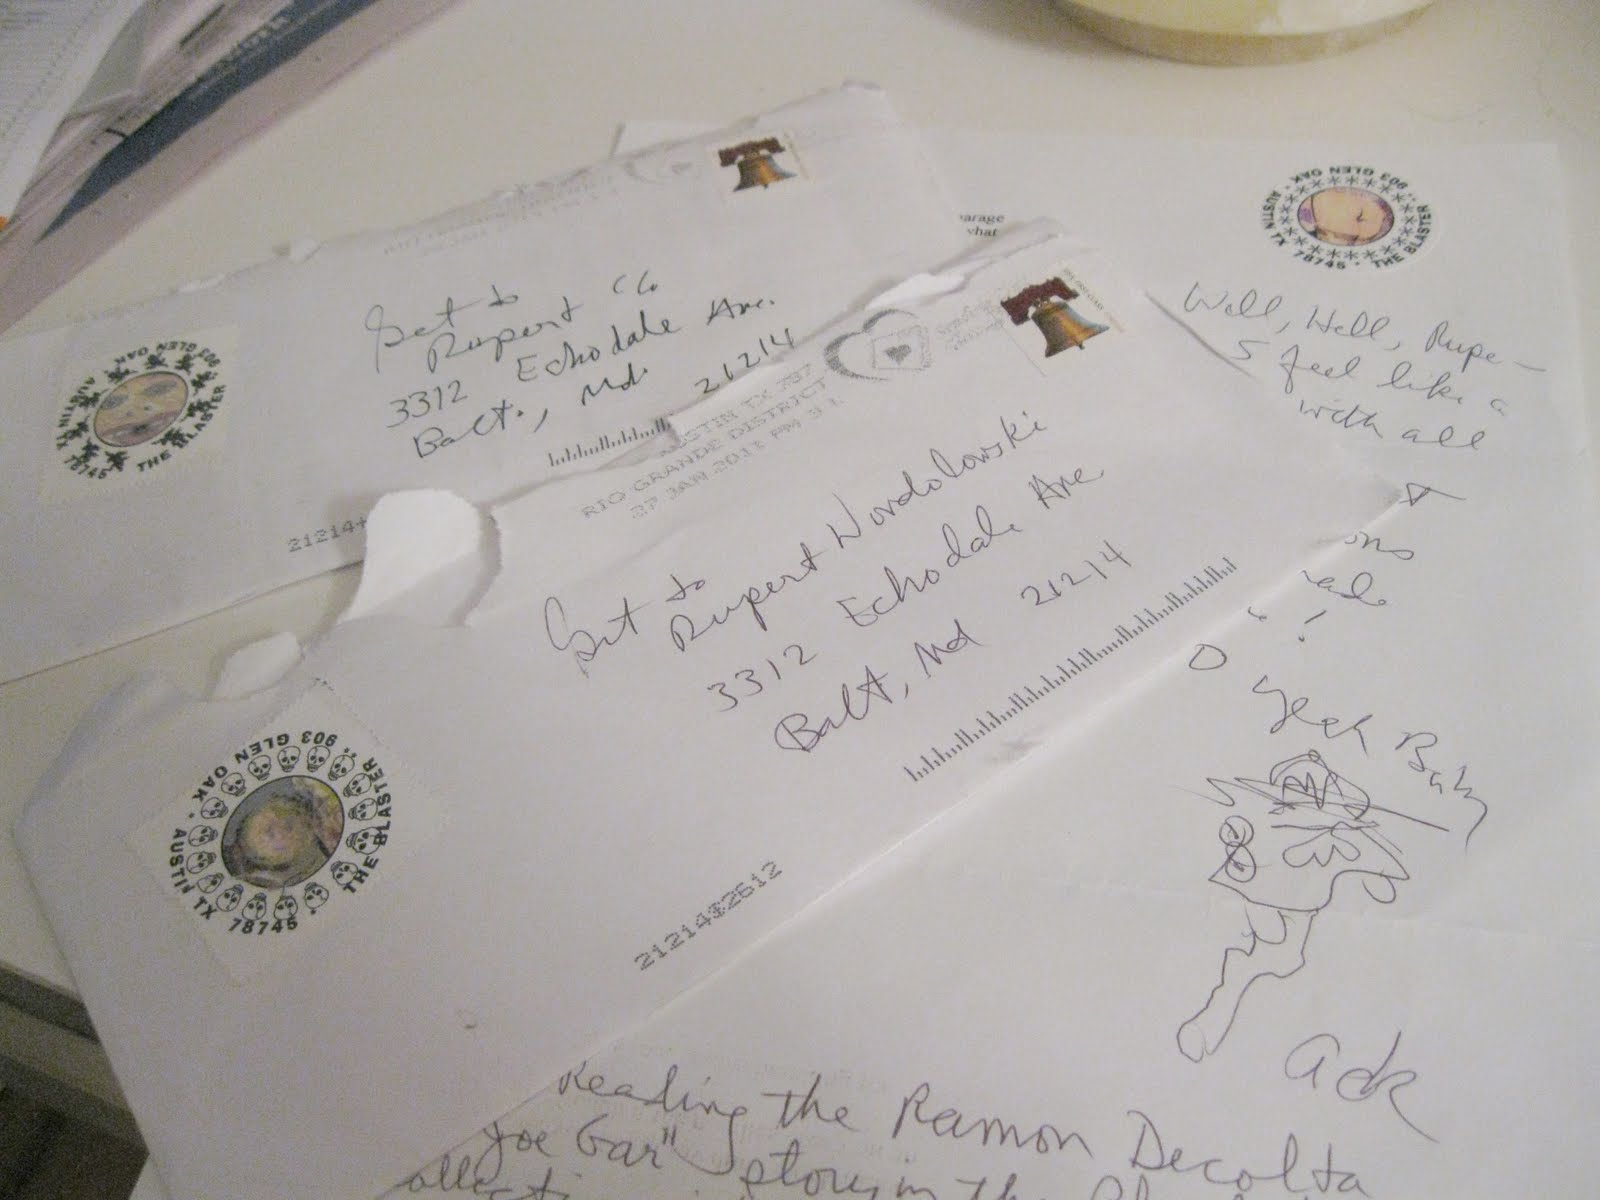 Get to
Rupert C/o
3312 Echodale Ave.
Balt., Md. 21214
21214+
903 GLEN OAK · AUSTIN TX 78745 · THE BLASTER
AUSTIN TX 787
RIO GRANDE DISTRICT
27 JAN 2011 PM 3 L
Get to
Rupert Wondolowski
3312 Echodale Ave
Balt, Md 21214
21214$2612
903 GLEN OAK · AUSTIN TX 78745 · THE BLASTER
903 GLEN OAK · AUSTIN TX 78745 · THE BLASTER
arage
what
Well, Hell, Rupe –
I feel like a
with all
ons
!
O yeah Baby
Ack
Reading the Ramon Decolta
Joe Gar" story in the